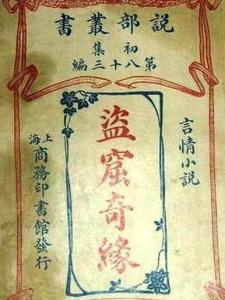 說部叢書
初集
第八十三編
言情小說
盜窟奇緣
上海
商務印書館發行